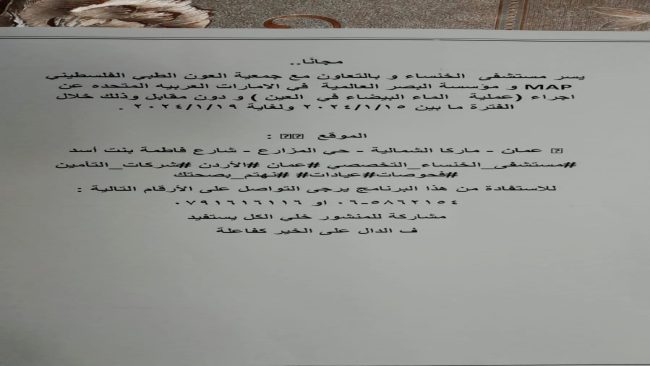 مجانا..
يسر مستشفى الخنساء و بالتعاون مع جمعية العون الطبي الفلسطيني
MAP و مؤسسة البصر العالمية في الامارات العربيه المتحده عن
اجراء (عملية الماء البيضاء في العين ) و دون مقابل وذلك خلال
الفترة ما بين ٢٠٢٤/١/١٥ ولغاية ٢٠٢٤/١/١٩ .
الموقع :
عمان - ماركا الشمالية - حي المزارع - شارع فاطمة بنت أسد
#مستشفى_الخنساء_التخصصي #عمان #الأردن #شركات_التأمين
#فحوصات #عيادات #نهتم_بصحتك
للاستفادة من هذا البرنامج يرجى التواصل على الأرقام التالية :
٠٦-٥٨٦٢١٥٤ او ٠٧٩١٦١٦١١٦
مشاركة للمنشور خلي الكل يستفيد
ف الدال على الخير كفاعلة